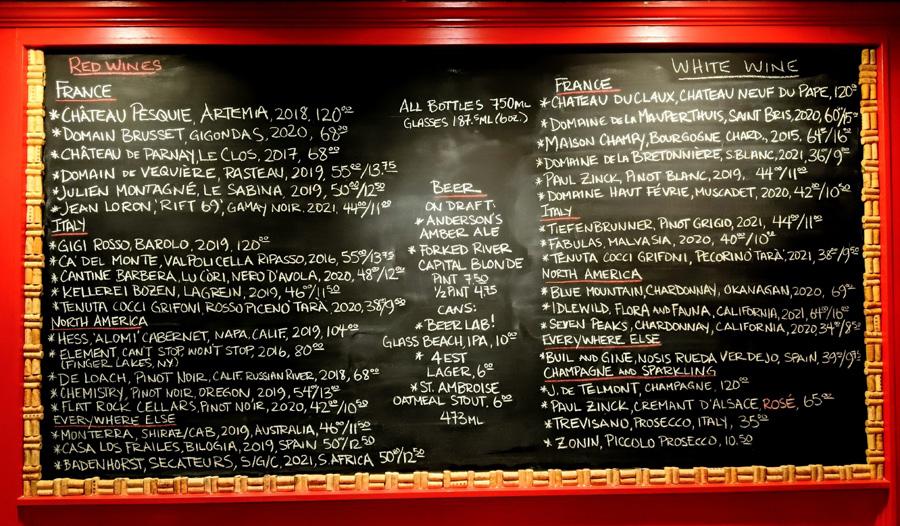 RED WINES
FRANCE
*CHÂTEAU PESQUIE, ARTEMIA, 2018, 120⁰⁰
*DOMAIN BRUSSET, GIGONDAS, 2020, 68⁰⁰
*CHÂTEAU DE PARNAY, LE CLOS, 2017, 68⁰⁰
*DOMAIN DE VEQUIÈRE, RASTEAU, 2019, 55⁰⁰/13.75
*JULIEN MONTAGNÉ, LE SABINA, 2019, 50⁰⁰/12⁵⁰
*JEAN LORON, 'RIFT 69', GAMAY NOIR, 2021, 44⁰⁰/11⁰⁰
ITALY
*GIGI ROSSO, BAROLO, 2019, 120⁰⁰
*CA' DEL MONTE, VALPOLICELLA RIPASSO, 2016, 55⁰⁰/13⁷⁵
*CANTINE BARBERA, LU CÒRI, NERO D'AVOLA, 2020, 48⁰⁰/12⁰⁰
*KELLEREI BOZEN, LAGREIN, 2019, 46⁰⁰/11⁵⁰
*TENUTA COCCI GRIFONI ROSSO PICENO TARÀ, 2020, 38⁰⁰/9⁵⁰
NORTH AMERICA
*HESS, 'ALOMI' CABERNET, NAPA, CALIF, 2019, 104⁰⁰
*ELEMENT, CAN'T STOP, WON'T STOP, 2016, 80⁰⁰
(FINGER LAKES, NY)
*DE LOACH, PINOT NOIR, CALIF. RUSSIAN RIVER, 2018, 68⁰⁰
*CHEMISTRY, PINOT NOIR, OREGON, 2019, 54⁰⁰/13⁵⁰
*FLAT ROCK CELLARS, PINOT NOIR, 2020, 42⁰⁰/10⁵⁰
EVERYWHERE ELSE
*MONTERRA, SHIRAZ/CAB, 2019, AUSTRALIA, 46⁰⁰/11⁵⁰
*CASA LOS FRAILES, BILOGIA, 2019, SPAIN 50⁰⁰/12⁵⁰
*BADENHORST, SECATEURS, S/G/C, 2021, S. AFRICA 50⁰⁰/12⁵⁰
ALL BOTTLES 750ML
GLASSES 187.⁵ML (6OZ.)
BEER
ON DRAFT:
*ANDERSON'S
AMBER ALE
*FORKED RIVER
CAPITAL BLONDE
PINT 7.50
½ PINT 4.75
CANS:
*BEER LAB!
GLASS BEACH, IPA, 10⁰⁰
*4EST
LAGER, 6⁰⁰
*ST. AMBROISE
OATMEAL STOUT, 6⁰⁰
473ML
WHITE WINE
FRANCE
*CHATEAU DUCLAUX, CHATEAU NEUF DU PAPE, 120⁰⁰
*DOMAINE DE LA MAUPERTHUIS, SAINT BRIS, 2020, 60⁰⁰/15⁰⁰
*MAISON CHAMPY, BOURGOGNE CHARD., 2015, 64⁰⁰/16⁰⁰
*DOMAINE DE LA BRETONNIÈRE, S. BLANC, 2021, 36/9⁰⁰
*PAUL ZINCK, PINOT BLANC, 2019, 44⁰⁰/11⁰⁰
*DOMAINE HAUT FÉVRIE, MUSCADET, 2020, 42⁰⁰/10⁵⁰
ITALY
*TIEFENBRUNNER, PINOT GRIGIO, 2021, 44⁰⁰/11⁰⁰
*FABULAS, MALVASIA, 2020, 40⁰⁰/10⁰⁰
*TENUTA COCCI GRIFONI, PECORINO TARÀ, 2021, 38⁰⁰/9⁵⁰
NORTH AMERICA
*BLUE MOUNTAIN, CHARDONNAY, OKANAGAN, 2020, 69⁰⁰
*IDLEWILD, FLORA AND FAUNA, CALIFORNIA, 2021, 64⁰⁰/16⁰⁰
*SEVEN PEAKS, CHARDONNAY, CALIFORNIA, 2020 34⁰⁰/8⁵⁰
EVERYWHERE ELSE
*BUIL AND GINÉ, NOSIS RUEDA VERDEJO, SPAIN, 39⁰⁰/9⁷⁵
CHAMPAGNE AND SPARKLING
*J. DE TELMONT, CHAMPAGNE, 120⁰⁰
*PAUL ZINCK, CREMANT D'ALSACE, ROSÉ, 65⁰⁰
*TREVISANO, PROSECCO, ITALY, 35⁰⁰
*ZONIN, PICCOLO PROSECCO, 10.50